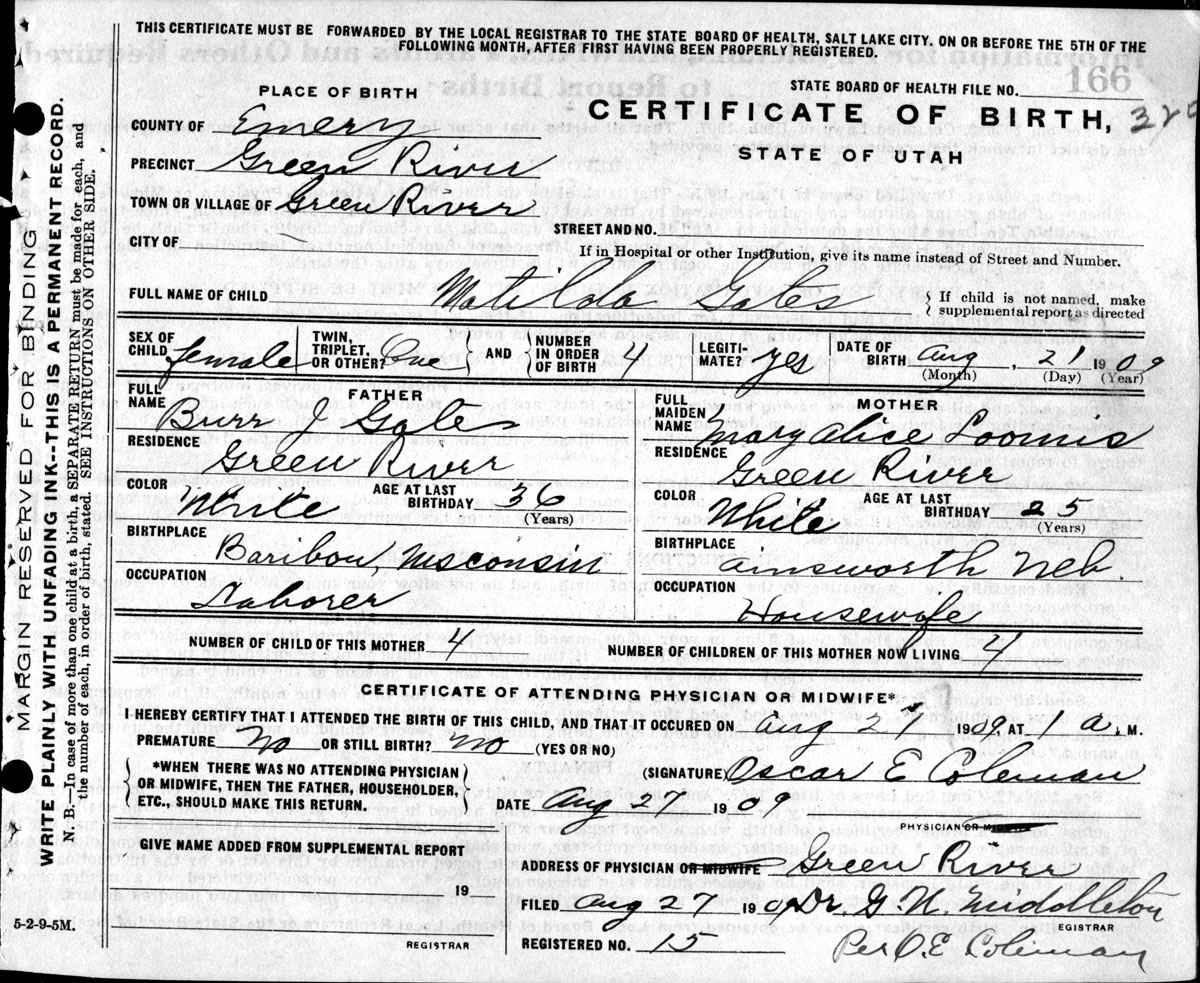 THIS CERTIFICATE MUST BE FORWARDED BY THE LOCAL REGISTRAR TO THE STATE BOARD OF HEALTH, SALT LAKE CITY, ON OR BEFORE THE 5TH OF THE
FOLLOWING MONTH, AFTER FIRST HAVING BEEN PROPERLY REGISTERED.
STATE BOARD OF HEALTH FILE NO. 166
PLACE OF BIRTH
CERTIFICATE OF BIRTH, 320
STATE OF UTAH
COUNTY OF Emery
PRECINCT Green River
TOWN OR VILLAGE OF Green River
STREET AND NO.
CITY OF
If in Hospital or other Institution, give its name instead of Street and Number.
FULL NAME OF CHILD Matilda Gales
If child is not named, make
supplemental report as directed
SEX OF CHILD female
TWIN, TRIPLET, OR OTHER? One
AND
NUMBER IN ORDER OF BIRTH
LEGITI-MATE? yes
DATE OF BIRTH Aug, 21 1909
(Month) (Day) (Year)
FATHER
FULL NAME Burr J Gales
RESIDENCE Green River
COLOR White
AGE AT LAST BIRTHDAY 36
(Years)
BIRTHPLACE Baribou, Wisconsin
OCCUPATION Laborer
MOTHER
FULL MAIDEN NAME Mary Alice Loomis
RESIDENCE Green River
COLOR White
AGE AT LAST BIRTHDAY 25
(Years)
BIRTHPLACE Ainsworth Neb.
OCCUPATION Housewife
NUMBER OF CHILD OF THIS MOTHER 4
NUMBER OF CHILDREN OF THIS MOTHER NOW LIVING 4
CERTIFICATE OF ATTENDING PHYSICIAN OR MIDWIFE*
I HEREBY CERTIFY THAT I ATTENDED THE BIRTH OF THIS CHILD, AND THAT IT OCCURED ON Aug 21 1909. AT 1 a. M.
PREMATURE No OR STILL BIRTH? No (YES OR NO)
*WHEN THERE WAS NO ATTENDING PHYSICIAN
OR MIDWIFE, THEN THE FATHER, HOUSEHOLDER,
ETC., SHOULD MAKE THIS RETURN.
(SIGNATURE) Oscar E Coleman
DATE Aug 27 1909
PHYSICIAN OR MIDWIFE
GIVE NAME ADDED FROM SUPPLEMENTAL REPORT
19
REGISTRAR
ADDRESS OF PHYSICIAN OR MIDWIFE Green River
FILED Aug 27 1909 Dr. G. N. Middleton
EGISTRAR
REGISTERED NO. 15
Per O. E. Coleman
5-2-9-5M.
MARGIN RESERVED FOR BINDING
WRITE PLAINLY WITH UNFADING INK--THIS IS A PERMANENT RECORD.
N. B.—In case of more than one child at a birth, a SEPARATE RETURN must be made for each, and
the number of each, in order of birth, stated. SEE INSTRUCTIONS ON OTHER SIDE.